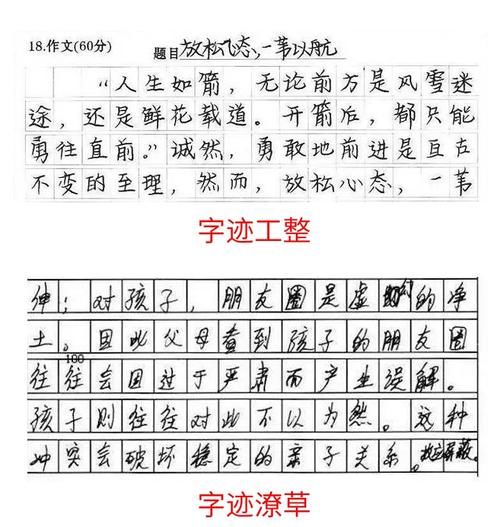 18.作文(60分) 题目 放松心态，一苇以航
“人生如箭，无论前方是风雪迷
途，还是鲜花载道。开箭后，都只能
勇往直前。”诚然，勇敢地前进是亘古
不变的至理，然而，放松心态，一苇
字迹工整
伸；对孩子，朋友圈是虚的净
土。因此父母查到孩子的朋友圈
100
往往会因过于严肃而产生误解。
孩子则往往对此不以为然。这种
冲突会破坏稳定的亲子关系。
字迹潦草